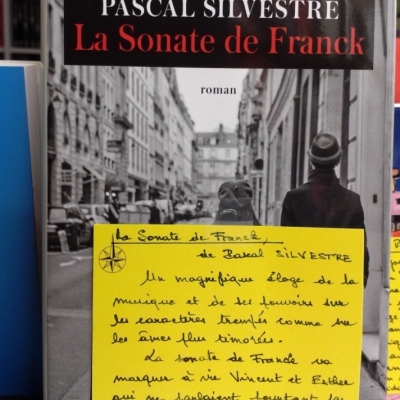 PASCAL SILVESTRE
La Sonate de Franck
roman
La Sonate de Franck,
de Pascal SILVESTRE
Un magnifique éloge de la
musique et de ses pouvoirs sur
les caractères trempés comme sur
les âmes plus timorées.
La sonate de Franck va
marquer à vie Vincent et Esther
qui ne pourtant